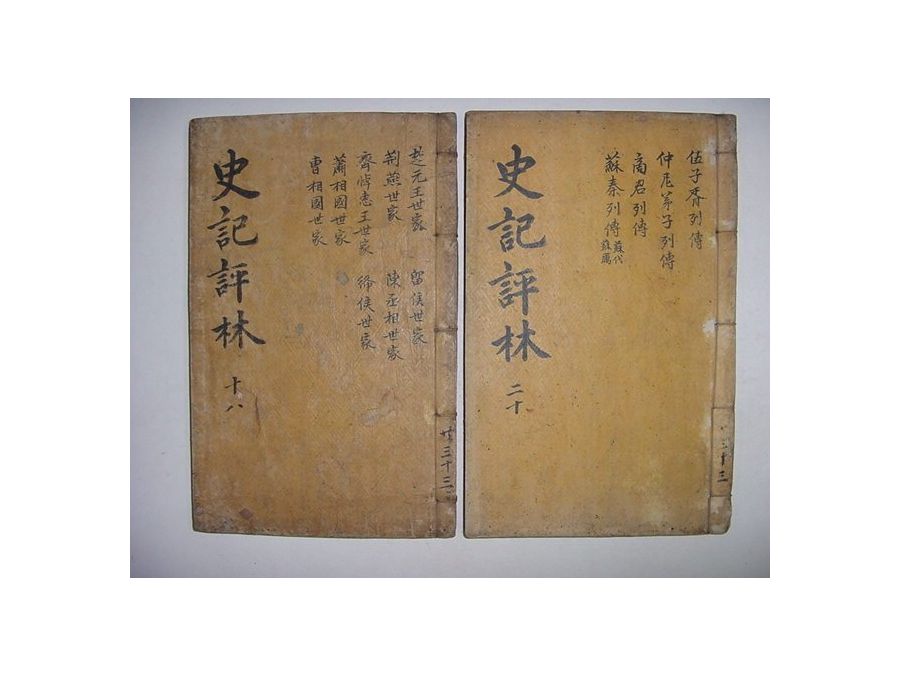 史記評林 十八
楚元王世家 留侯世家
荊燕世家 陳丞相世家
齊悼惠王世家 絳侯世家
蕭相國世家
曹相國世家
共三十三
史記評林 二十
伍子胥列傳
仲尼弟子列傳
商君列傳
蘇秦列傳 蘇代 蘇厲
共三十三